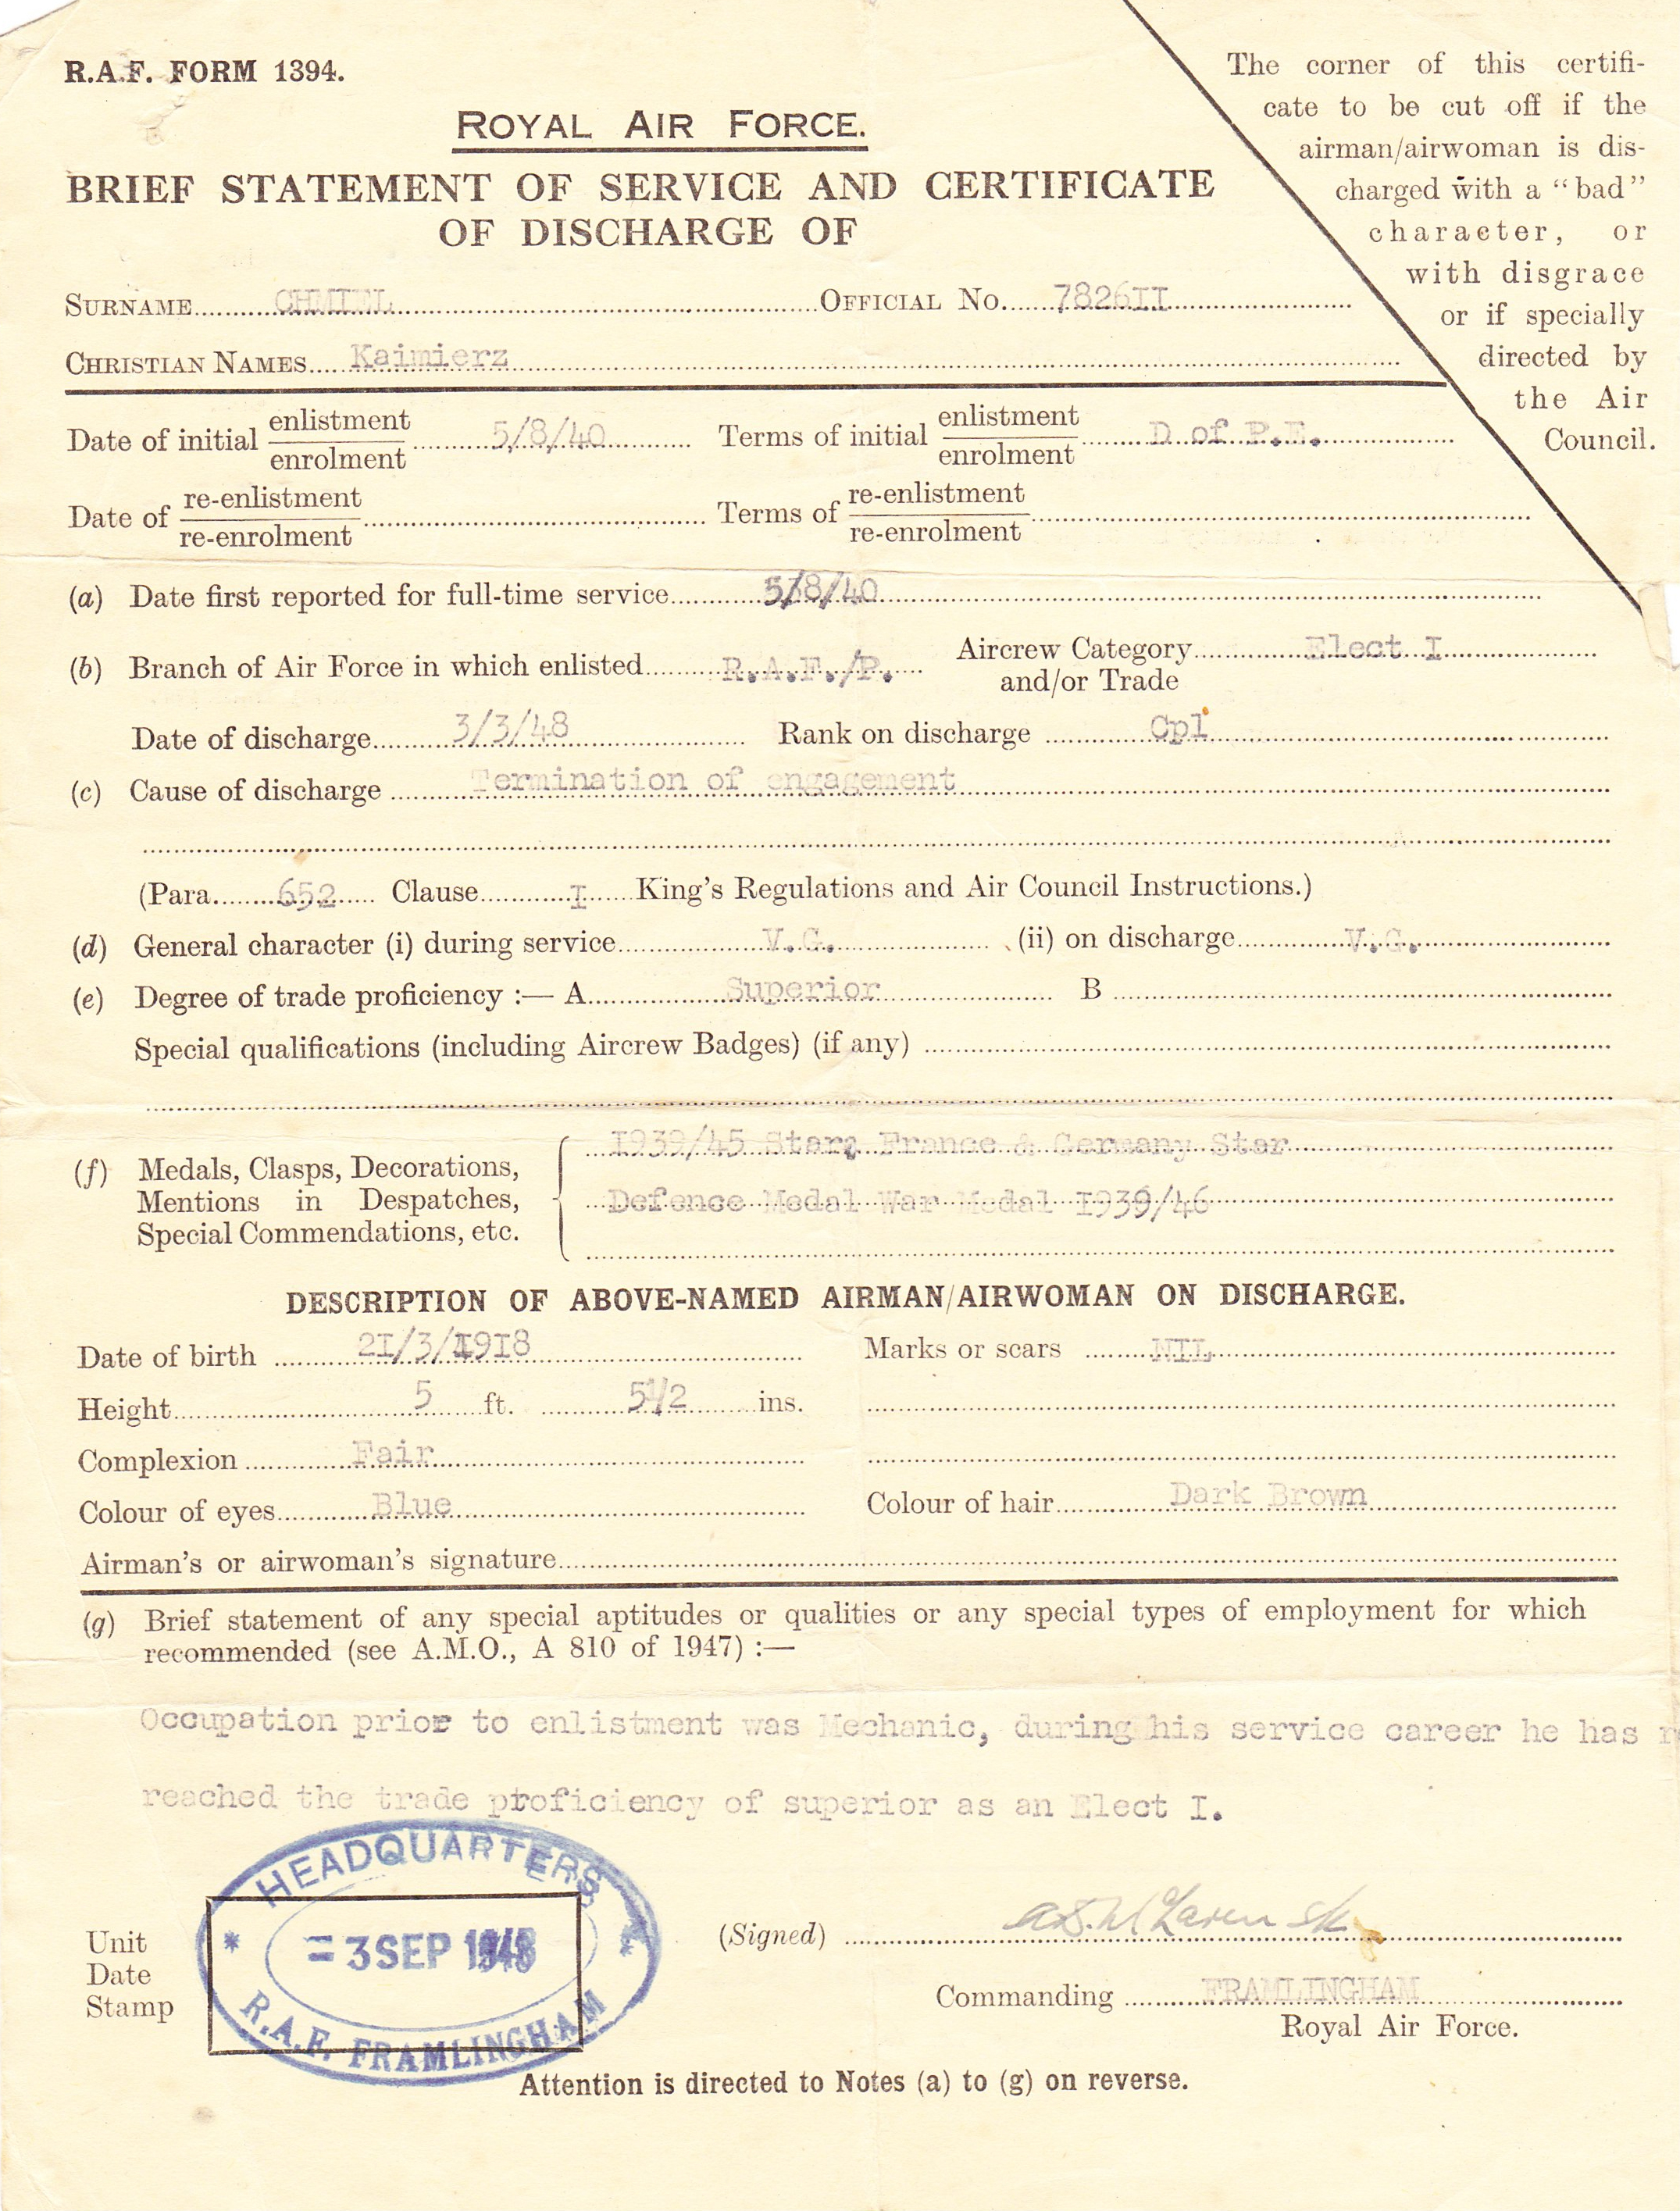 R.A.F. FORM 1394.
The corner of this certifi-
cate to be cut off if the
airman/airwoman is dis-
charged with a “bad”
character, or
with disgrace
or if specially
directed by
the Air
Council.
ROYAL AIR FORCE.
BRIEF STATEMENT OF SERVICE AND CERTIFICATE
OF DISCHARGE OF
SURNAME CHMIEL OFFICIAL NO. 7826II
CHRISTIAN NAMES Kaimierz
Date of initial enlistment/enrolment 5/8/40 Terms of initial enlistment/enrolment D of P.E.
Date of re-enlistment/re-enrolment Terms of re-enlistment/re-enrolment
(a) Date first reported for full-time service 5/8/40
(b) Branch of Air Force in which enlisted R.A.F./P. Aircrew Category Elect I
and/or Trade
Date of discharge 3/3/48 Rank on discharge Cpl
(c) Cause of discharge Termination of engagement
(Para. 652 Clause I King's Regulations and Air Council Instructions.)
(d) General character (i) during service V.G. (ii) on discharge V.G.
(e) Degree of trade proficiency :— A Superior B
Special qualifications (including Aircrew Badges) (if any)
(f) Medals, Clasps, Decorations,
Mentions in Despatches,
Special Commendations, etc.
I939/45 Star, France & Germany Star
Defence Medal War Medal I939/46
DESCRIPTION OF ABOVE-NAMED AIRMAN/AIRWOMAN ON DISCHARGE.
Date of birth 2I/3/I9I8 Marks or scars NIL
Height 5 ft. 5½ ins.
Complexion Fair
Colour of eyes Blue Colour of hair Dark Brown
Airman's or airwoman's signature
(g) Brief statement of any special aptitudes or qualities or any special types of employment for which
recommended (see A.M.O., A 810 of 1947) :—
Occupation prior to enlistment was Mechanic, during his service career he has
reached the trade proficiency of superior as an Elect I.
HEADQUARTERS
= 3 SEP 1948
R.A.F. FRAMLINGHAM
Unit
Date
Stamp
(Signed)
Commanding FRAMLINGHAM
Royal Air Force.
Attention is directed to Notes (a) to (g) on reverse.